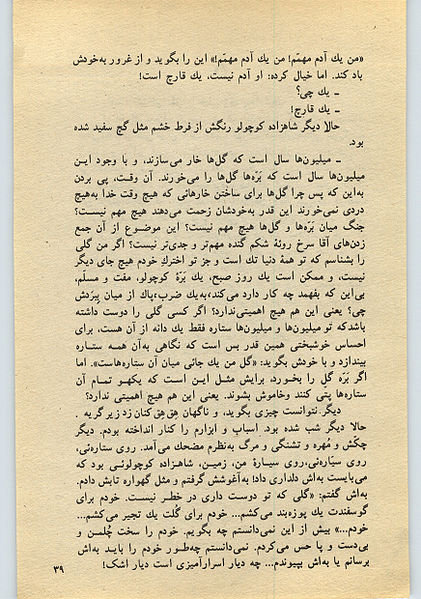 «من یك آدم مهمّم! من یك آدم مهمّم!» این را بگوید و از غرور به‌خودش
باد کند. اما خیال کرده: او آدم نیست، یك قارچ است!
ـ یك چی؟
ـ یك قارچ!
حالا دیگر شاهزاده کوچولو رنگش از فرط خشم مثل گچ سفید شده
بود.
ـ میلیون‌ها سال است که گل‌ها خار می‌سازند، و با وجود ایـن
میلیون‌ها سال است که بَرّه‌ها گل‌ها را می‌خورند. آن وقت، پی بردن
به‌این که پس چرا گل‌ها برای ساختن خارهائی که هیچ وقت خدا به‌هیچ
دردی نمی‌خورند این قدر به‌خودشان زحمت می‌دهند هیچ مهم نیست؟
جنگ میان بَرّه‌ها و گل‌ها هیچ مهم نیست؟ این موضوع از آن جمع
زدن‌های آقا سرخ روئهٔ شکم گنده مهم‌تر و جدی‌تر نیست؟ اگر من گلی
را بشناسم که تو همهٔ دنیا تك است و جز تو اخترك خودم هیچ جای دیگر
نیست، و ممکن است یك روز صبح، یك بَرّهٔ کوچولو، مفت و مسلّم،
بی‌این که بفهمد چه کار دارد می‌کند،به‌یك ضرب،پاك از میان بِبَرَدش
چی؟ یعنی این هم هیچ اهمیتی‌ندارد؟ اگر کسی گلی را دوست داشته
باشدکه تو میلیون‌ها و میلیون‌ها ستاره فقط یك دانه از آن هست، برای
احساس خوشبختی همین قدر بس است که نگاهی به‌آن همـه ستـاره
بیندازد و با خودش بگوید: «گل من یك جائی میان آن ستاره‌هاست». اما
اگر بَرّه گل را بخـورد، برایش مثـل ایـن است که یکهـو تمـام آن
ستاره‌ها پِتی کنند وخاموش بشوند. یعنی این هم هیچ اهمیتی ندارد؟
دیگر. نتوانست چیزی بگوید، و ناگهان هِق‌هِق کنان زد زیر گریه .
حالا دیگر شب شده بود. اسباب و ابزارم را کنار انداخته بودم. دیگر
چکّش و مُهره و تشنگی و مرگ به‌نظرم مضحك می‌آمد. روی ستاره‌ئی،
روی سیّاره‌ئی،روی سیـارهٔ من، زمیـن، شاهـزاده کوچولوئـی بود که
می‌بایست به‌اش دلداری داد! به‌آغوشش گرفتم و مثل گهواره تابش دادم.
به‌اش گفتم: «گلی که تو دوست داری در خطـر نیست. خودم برای
گوسفندت یك پوزه‌بند می‌کشم... خودم برای گُلت یك تجیر می‌کشم...
خودم...» بیش از این نمی‌دانستم چه بگویم. خودم را سخت چُلمـن و
بی‌دست و پا حس می‌کردم. نمی‌دانستم چه‌طور خودم را باید به‌اش
برسانم یا به‌اش بپیوندم... چه دیار اسرارآمیزی است دیار اشک!
۳۹